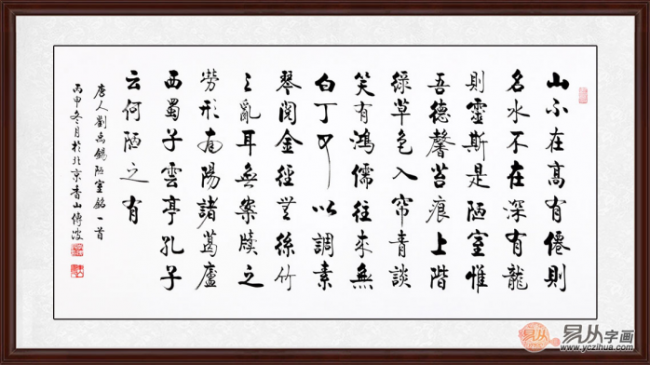 山不在高有僊則
名水不在深有龍
則靈斯是陋室惟
吾德馨苔痕上階
緑草色入帘青談
笑有鴻儒往來無
白丁可以調素
琴閲金經無絲竹
之亂耳無案牘之
勞形南陽諸葛廬
西蜀子雲亭孔子
云何陋之有
唐人劉禹錫陋室銘一首
丙申冬月於北京香山傳波
易从字画
www.yczihua.com